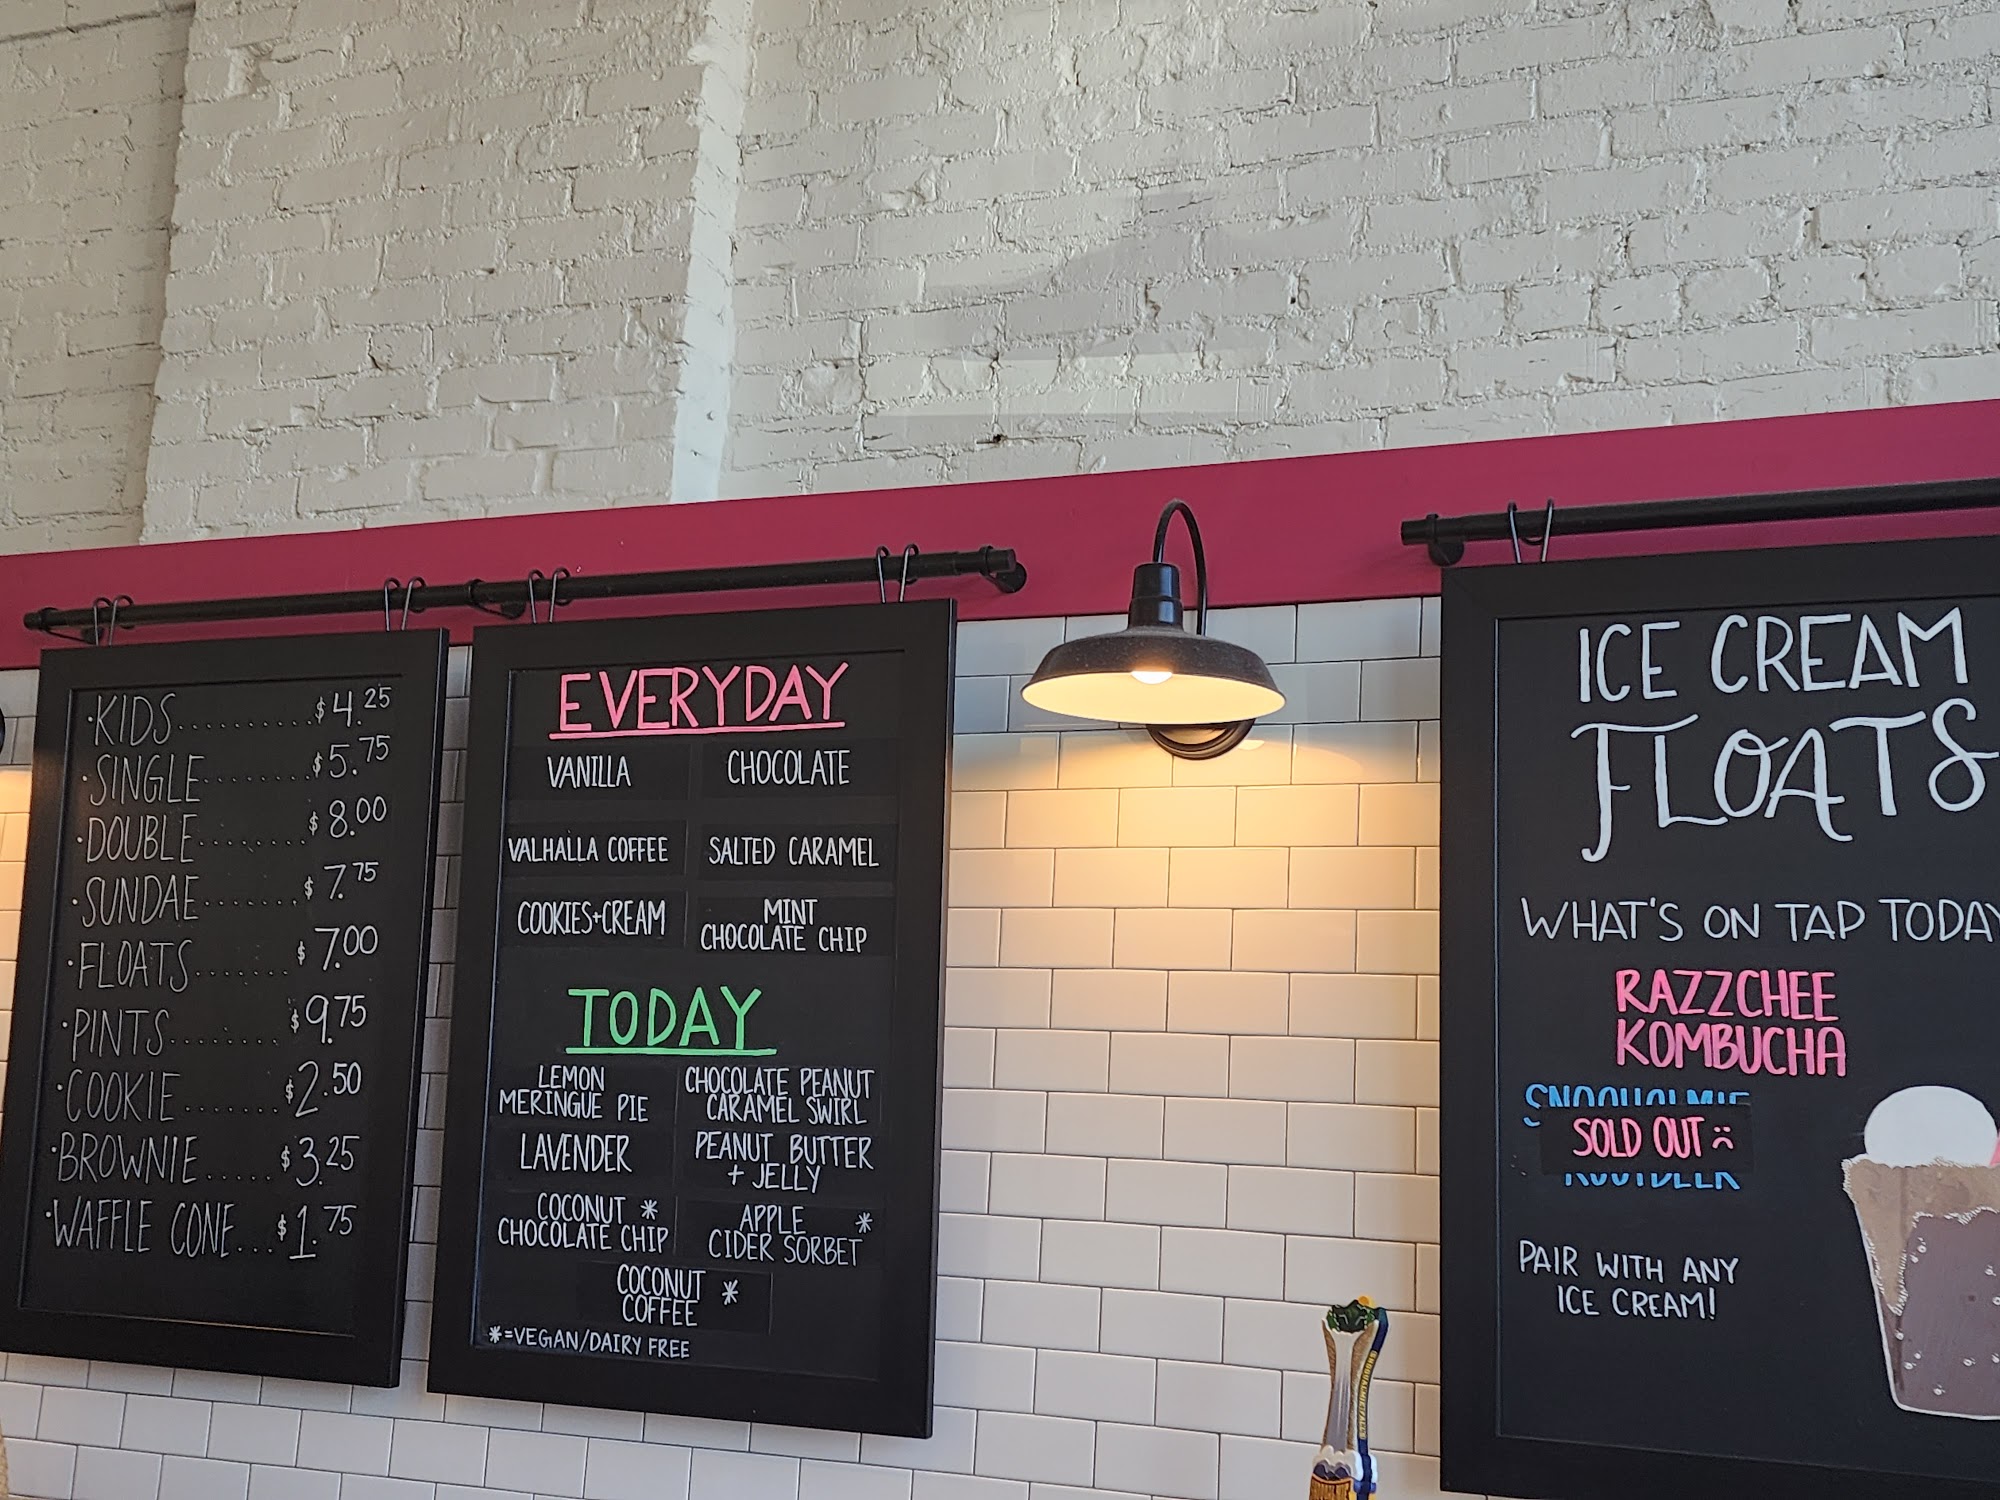 ·KIDS.......... $4.25
·SINGLE.......... $5.75
·DOUBLE.......... $8.00
·SUNDAE.......... $7.75
·FLOATS....... $7.00
·PINTS......... $9.75
·COOKIE....... $2.50
·BROWNIE.... $3.25
·WAFFLE CONE... $1.75
EVERYDAY
VANILLA
CHOCOLATE
VALHALLA COFFEE
SALTED CARAMEL
COOKIES+CREAM
MINT
CHOCOLATE CHIP
TODAY
LEMON
MERINGUE PIE
CHOCOLATE PEANUT
CARAMEL SWIRL
LAVENDER
PEANUT BUTTER
+ JELLY
COCONUT *
CHOCOLATE CHIP
APPLE *
CIDER SORBET
COCONUT *
COFFEE
*=VEGAN/DAIRY FREE
ICE CREAM
FLOATS
WHAT'S ON TAP TODAY
RAZZCHEE
KOMBUCHA
SOLD OUT :(
PAIR WITH ANY
ICE CREAM!